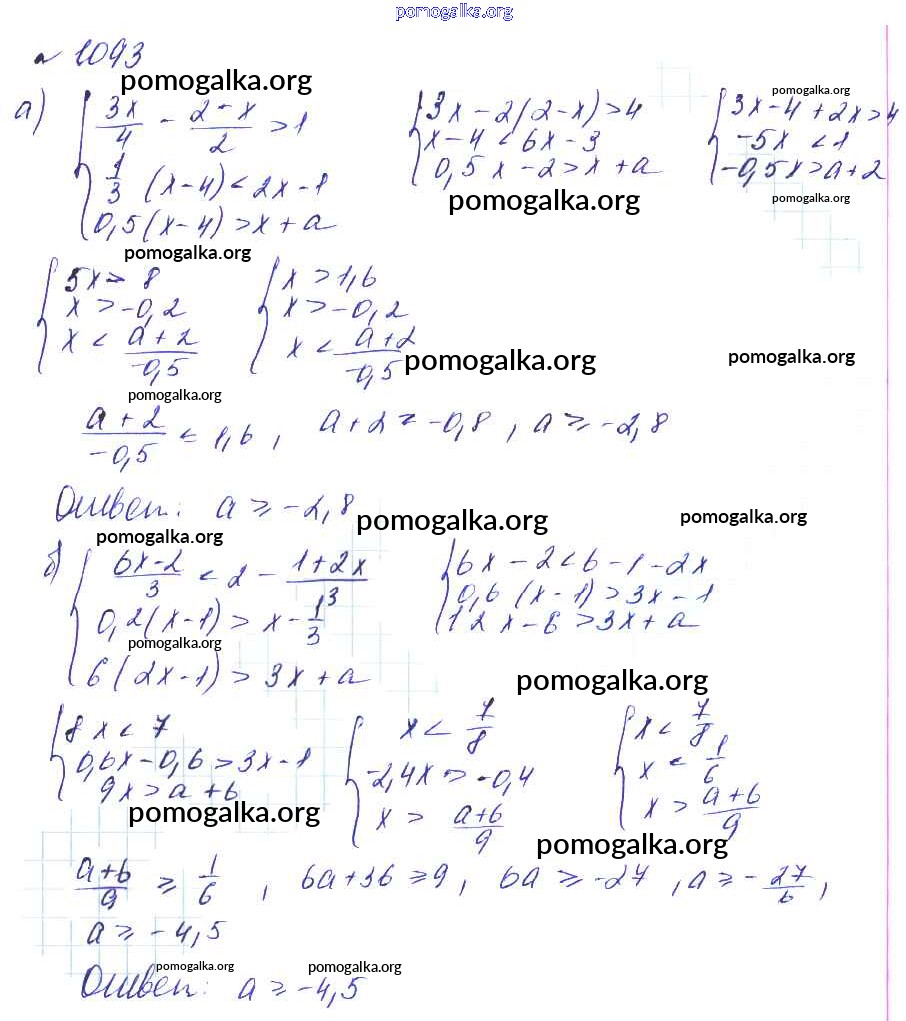 pomogalka.org
№ 1093
pomogalka.org
а) { 3x/4 - (2-x)/2 > 1   { 3x-2(2-x)>4   { 3x-4+2x>4
pomogalka.org
1/3 (x-4) < 2x-1   x-4 < 6x-3   -5x < 1
0,5(x-4) > x+a   0,5x-2 > x+a   -0,5x > a+2
pomogalka.org pomogalka.org
pomogalka.org
{ 5x > 8   { x > 1,6
x > -0,2   x > -0,2
x < (a+2)/-0,5   x < (a+2)/-0,5
pomogalka.org pomogalka.org
pomogalka.org
(a+2)/-0,5 ≤ 1,6 , a+2 ≥ -0,8 , a ≥ -2,8
Ответ: a ≥ -2,8
pomogalka.org pomogalka.org
pomogalka.org
б) { (6x-2)/3 < 2 - (1+2x)/3   { 6x-2<6-1-2x
0,2(x-1) > x - 1/3   0,6(x-1) > 3x-1
6(2x-1) > 3x+a   12x-6 > 3x+a
pomogalka.org
pomogalka.org
{ 8x < 7   { x < 7/8   { x < 7/8
0,6x-0,6 > 3x-1   -2,4x > -0,4   x < 1/6
9x > a+6   x > (a+6)/9   x > (a+6)/9
pomogalka.org
pomogalka.org
(a+6)/9 ≥ 1/6 , 6a+36 ≥ 9 , 6a ≥ -27 , a ≥ -27/6 ,
a ≥ -4,5
pomogalka.org pomogalka.org
Ответ: a ≥ -4,5